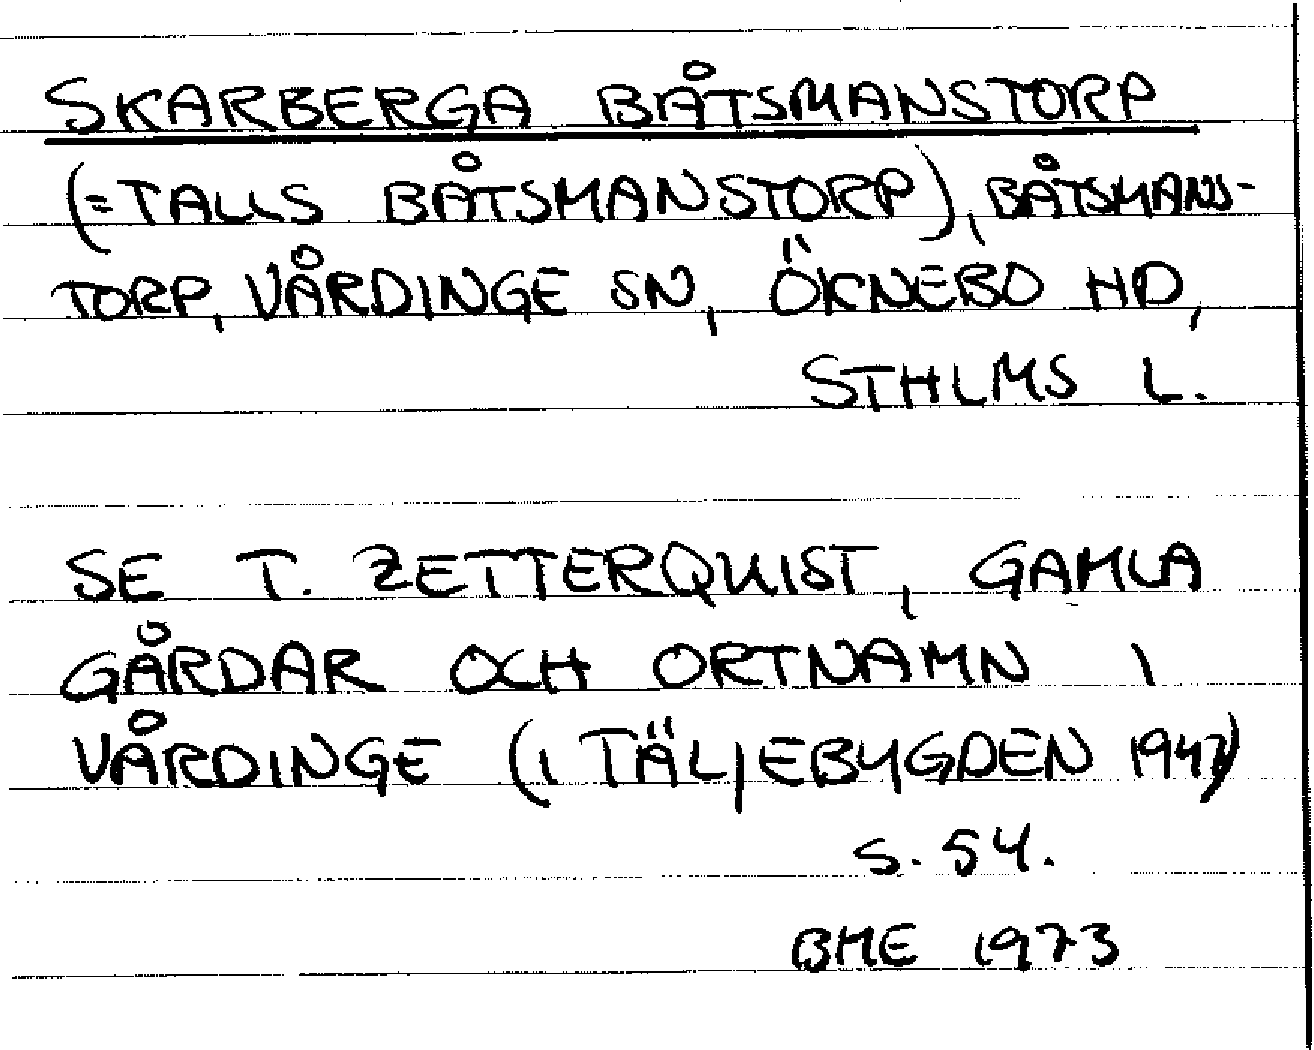 SKARBERGA BÅTSMANSTORP
(=TALLS BÅTSMANSTORP), BÅTSMANS-
TORP, VÅRDINGE SN, ÖKNEBO HD,
STHLMS L.
SE T. ZETTERQUIST, GAMLA
GÅRDAR OCH ORTNAMN I
VÅRDINGE (I TÄLJEBYGDEN 1947)
S. 54.
BME 1973